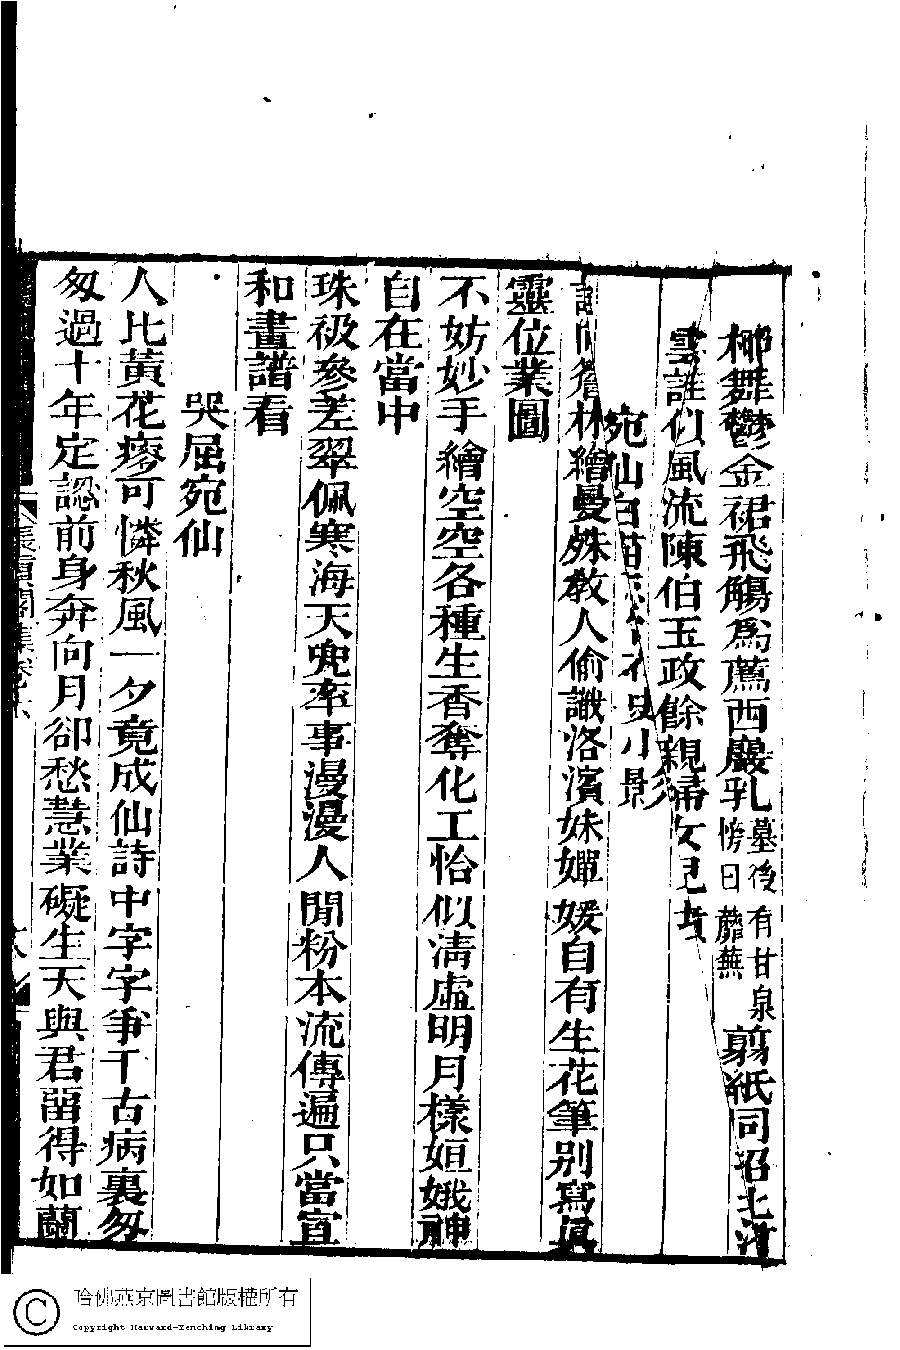 柳舞鬱金裙飛觴爲薦西巖乳墓後有甘泉傍曰蘼蕪翦紙同招北渚
雲誰似風流陳伯玉政餘親掃女兒墳
宛仙白描小影
繪曼殊教人偷識洛濱姝嬋媛自有生花筆别寫眞
靈位業圖
不妨妙手繪空空各種生香奪化工恰似淸虛明月樣姮娥神
自在當中
珠祓參差翠佩寒海天兜率事漫漫人間粉本流傳遍只當宣
和畫譜看
哭屈宛仙
人比黃花瘦可憐秋風一夕竟成仙詩中字字爭千古病裏匆
匆過十年定認前身奔向月卻愁慧業礙生天與君留得如蘭
長眞閣集卷十六
六
哈佛燕京圖書館版權所有
Copyright Harvard-Yenching Library